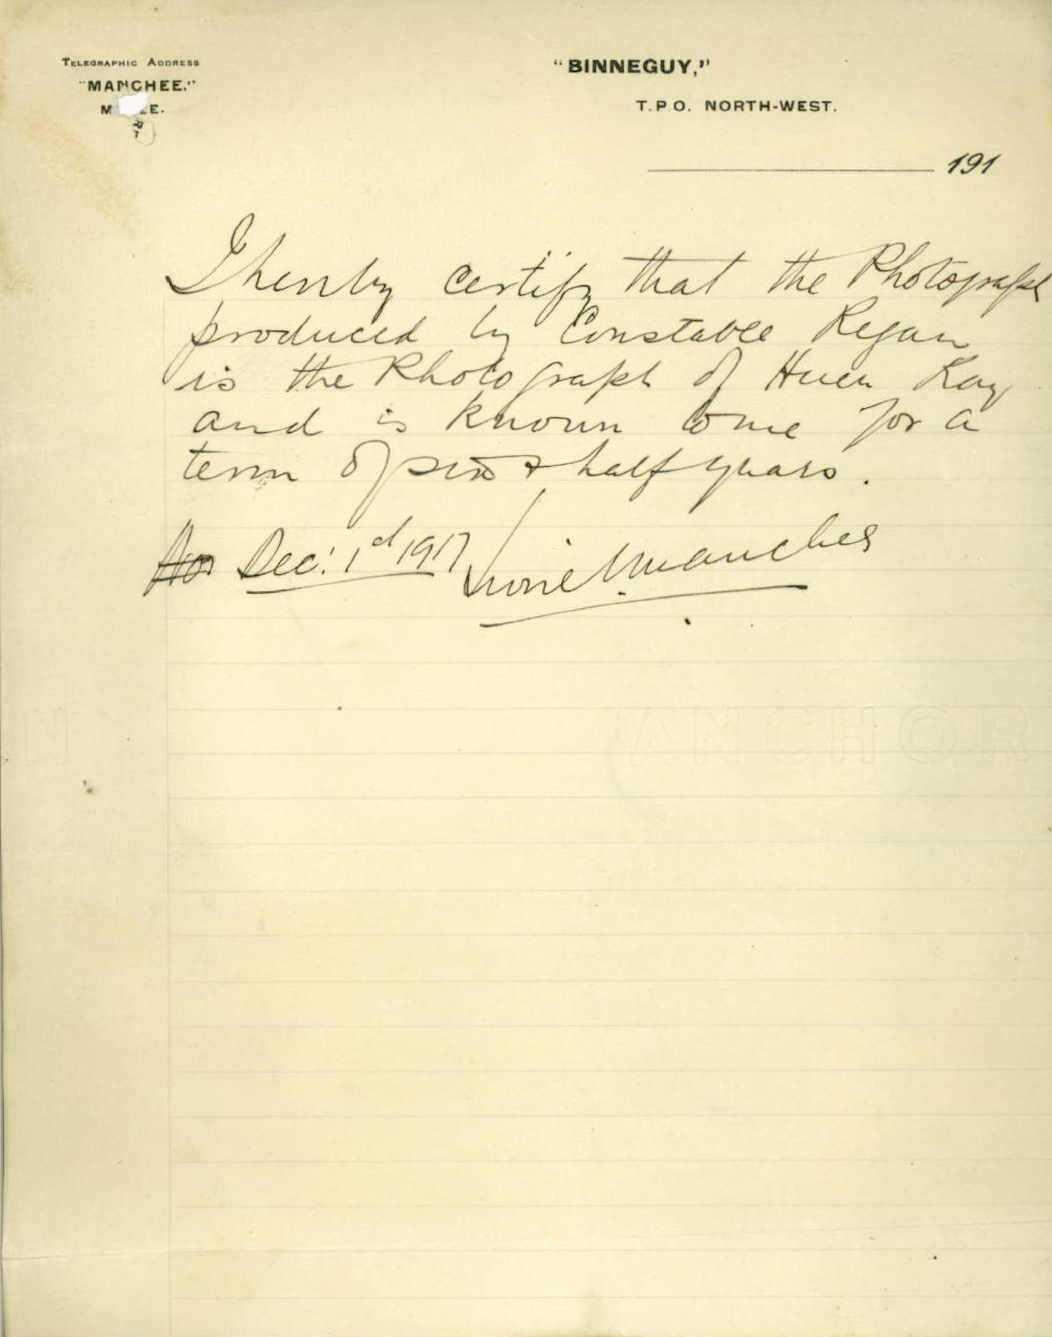 TELEGRAPHIC ADDRESS
"MANCHEE."
"BINNEGUY,"
T.P.O. NORTH-WEST.
191
I hereby certify that the Photograph
produced by Constable Regan
is the Photograph of Huen Kay
and is known to me for a
term of six & half years.
Dec: 1d 1917 Manchee
ANCHOR